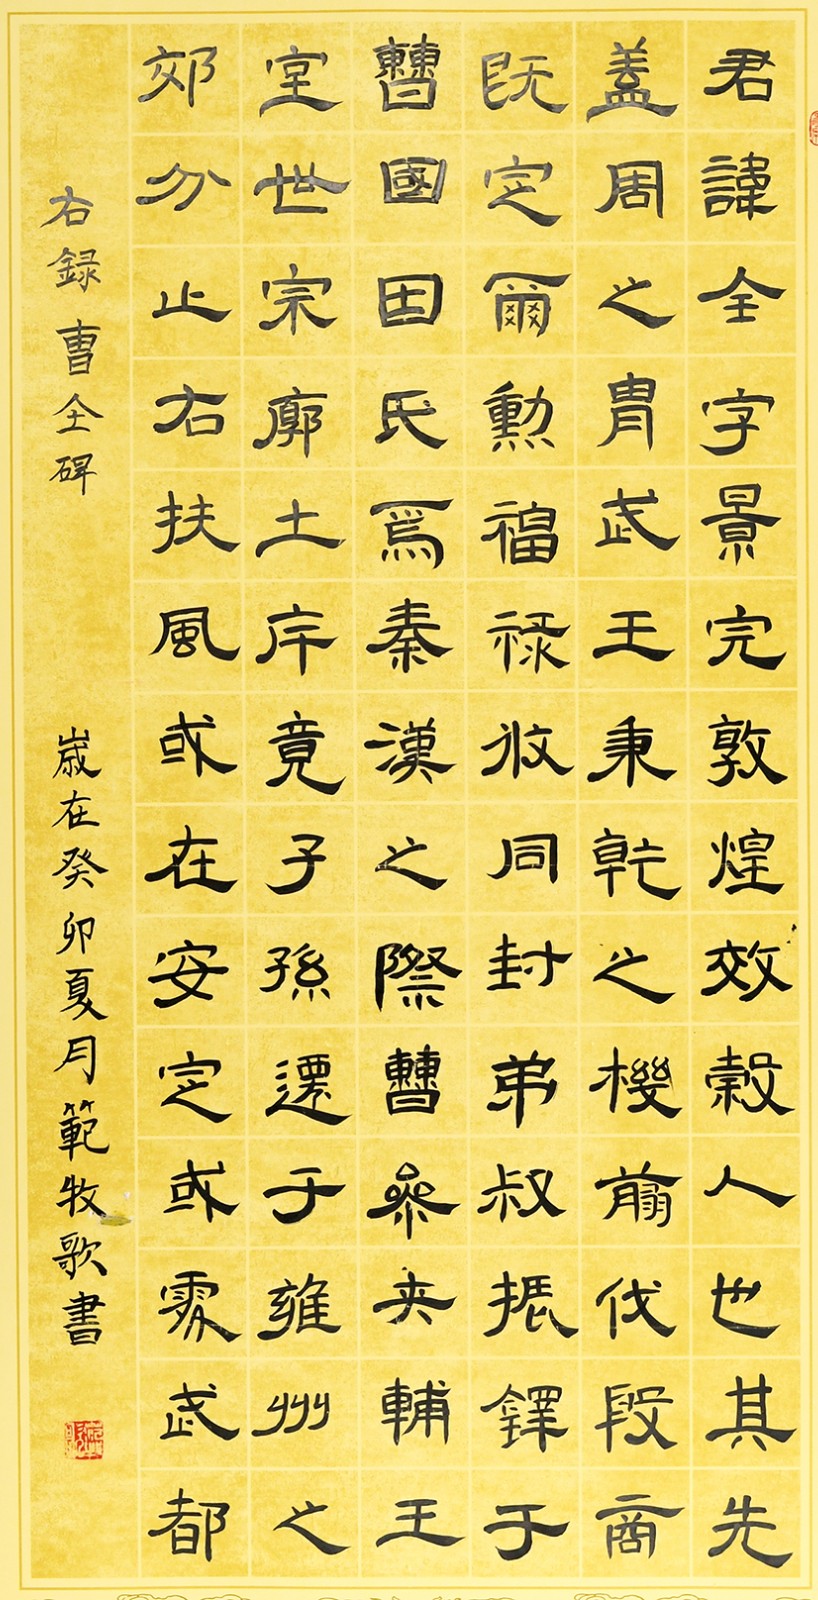 君諱全字景完敦煌效榖人也其先
蓋周之胄武王秉乾之機翦伐殷商
既定爾勳福祿攸同封弟叔振鐸于
曹國因氏焉秦漢之際曹參夹輔王
室世宗廓土斥竟子孫遷于雍州之
郊分止右扶風或在安定或處武都
右録曹全碑
歲在癸卯夏月範牧歌書